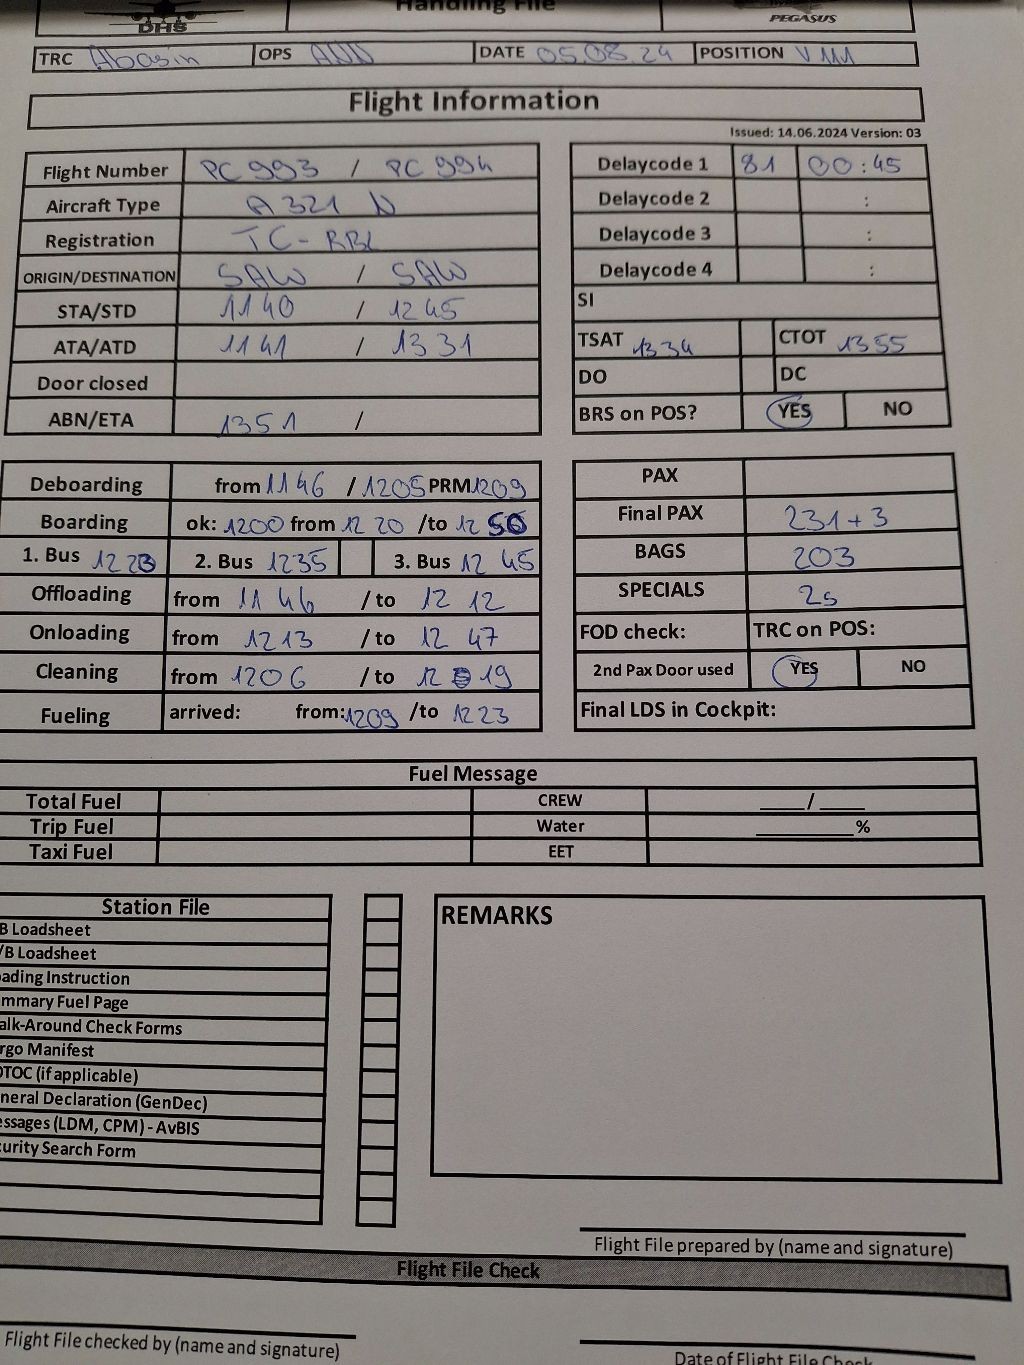 DHS
Handling File
PEGASUS
TRC Abasin OPS ANN DATE 05.08.24 POSITION V 111
Flight Information
Issued: 14.06.2024 Version: 03
Flight Number PC 993 / PC 994
Aircraft Type A 321 N
Registration TC-RBL
ORIGIN/DESTINATION SAW / SAW
STA/STD 1140 / 1245
ATA/ATD 1141 / 1331
Door closed
ABN/ETA 1351 /
Delaycode 1 81 00:45
Delaycode 2 :
Delaycode 3 :
Delaycode 4 :
SI
TSAT 1334 CTOT 1355
DO DC
BRS on POS? YES NO
Deboarding from 1146 / 1205 PRM 1209
Boarding ok: 1200 from 12 20 /to 12 50
1. Bus 1223 2. Bus 1235 3. Bus 12 45
Offloading from 11 46 / to 12 12
Onloading from 1213 / to 12 47
Cleaning from 1206 / to 12 19
Fueling arrived: from: 1209 /to 1223
PAX
Final PAX 231+3
BAGS 203
SPECIALS 2s
FOD check: TRC on POS:
2nd Pax Door used YES NO
Final LDS in Cockpit:
Fuel Message
Total Fuel CREW ____/____
Trip Fuel Water _________%
Taxi Fuel EET
Station File
B Loadsheet
/B Loadsheet
ading Instruction
mmary Fuel Page
alk-Around Check Forms
rgo Manifest
OTOC (if applicable)
neral Declaration (GenDec)
essages (LDM, CPM) - AvBIS
curity Search Form
REMARKS
Flight File prepared by (name and signature)
Flight File Check
Flight File checked by (name and signature)
Date of Flight File Check